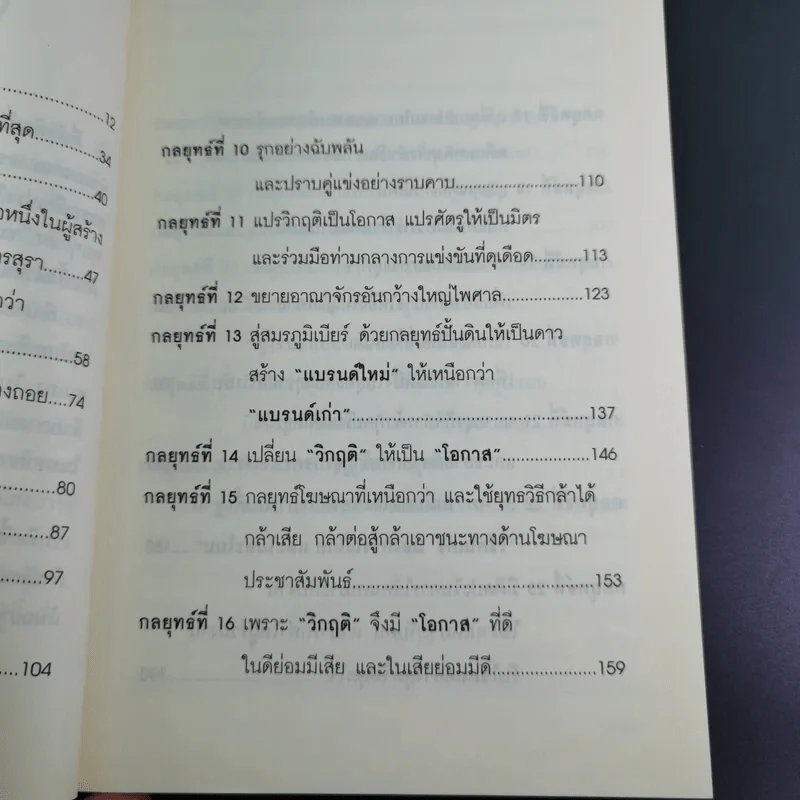 12
ที่สุด...34
40
หนึ่งในผู้สร้าง
รสุรา.........47
ว่า
58
งถอย....74
80
87
97
104
กลยุทธ์ที่ 10 รุกอย่างฉับพลัน
และปราบคู่แข่งอย่างราบคาบ............................110
กลยุทธ์ที่ 11 แปรวิกฤติเป็นโอกาส แปรศัตรูให้เป็นมิตร
และร่วมมือท่ามกลางการแข่งขันที่ดุเดือด............113
กลยุทธ์ที่ 12 ขยายอาณาจักรอันกว้างใหญ่ไพศาล..................123
กลยุทธ์ที่ 13 สู่สมรภูมิเบียร์ ด้วยกลยุทธ์ปั้นดินให้เป็นดาว
สร้าง “แบรนด์ใหม่” ให้เหนือกว่า
“แบรนด์เก่า”......................................................137
กลยุทธ์ที่ 14 เปลี่ยน “วิกฤติ” ให้เป็น “โอกาส”....................146
กลยุทธ์ที่ 15 กลยุทธ์โฆษณาที่เหนือกว่า และใช้ยุทธวิธีกล้าได้
กล้าเสีย กล้าต่อสู้กล้าเอาชนะทางด้านโฆษณา
ประชาสัมพันธ์......................................................153
กลยุทธ์ที่ 16 เพราะ “วิกฤติ” จึงมี “โอกาส” ที่ดี
ในดีย่อมมีเสีย และในเสียย่อมมีดี.......................159